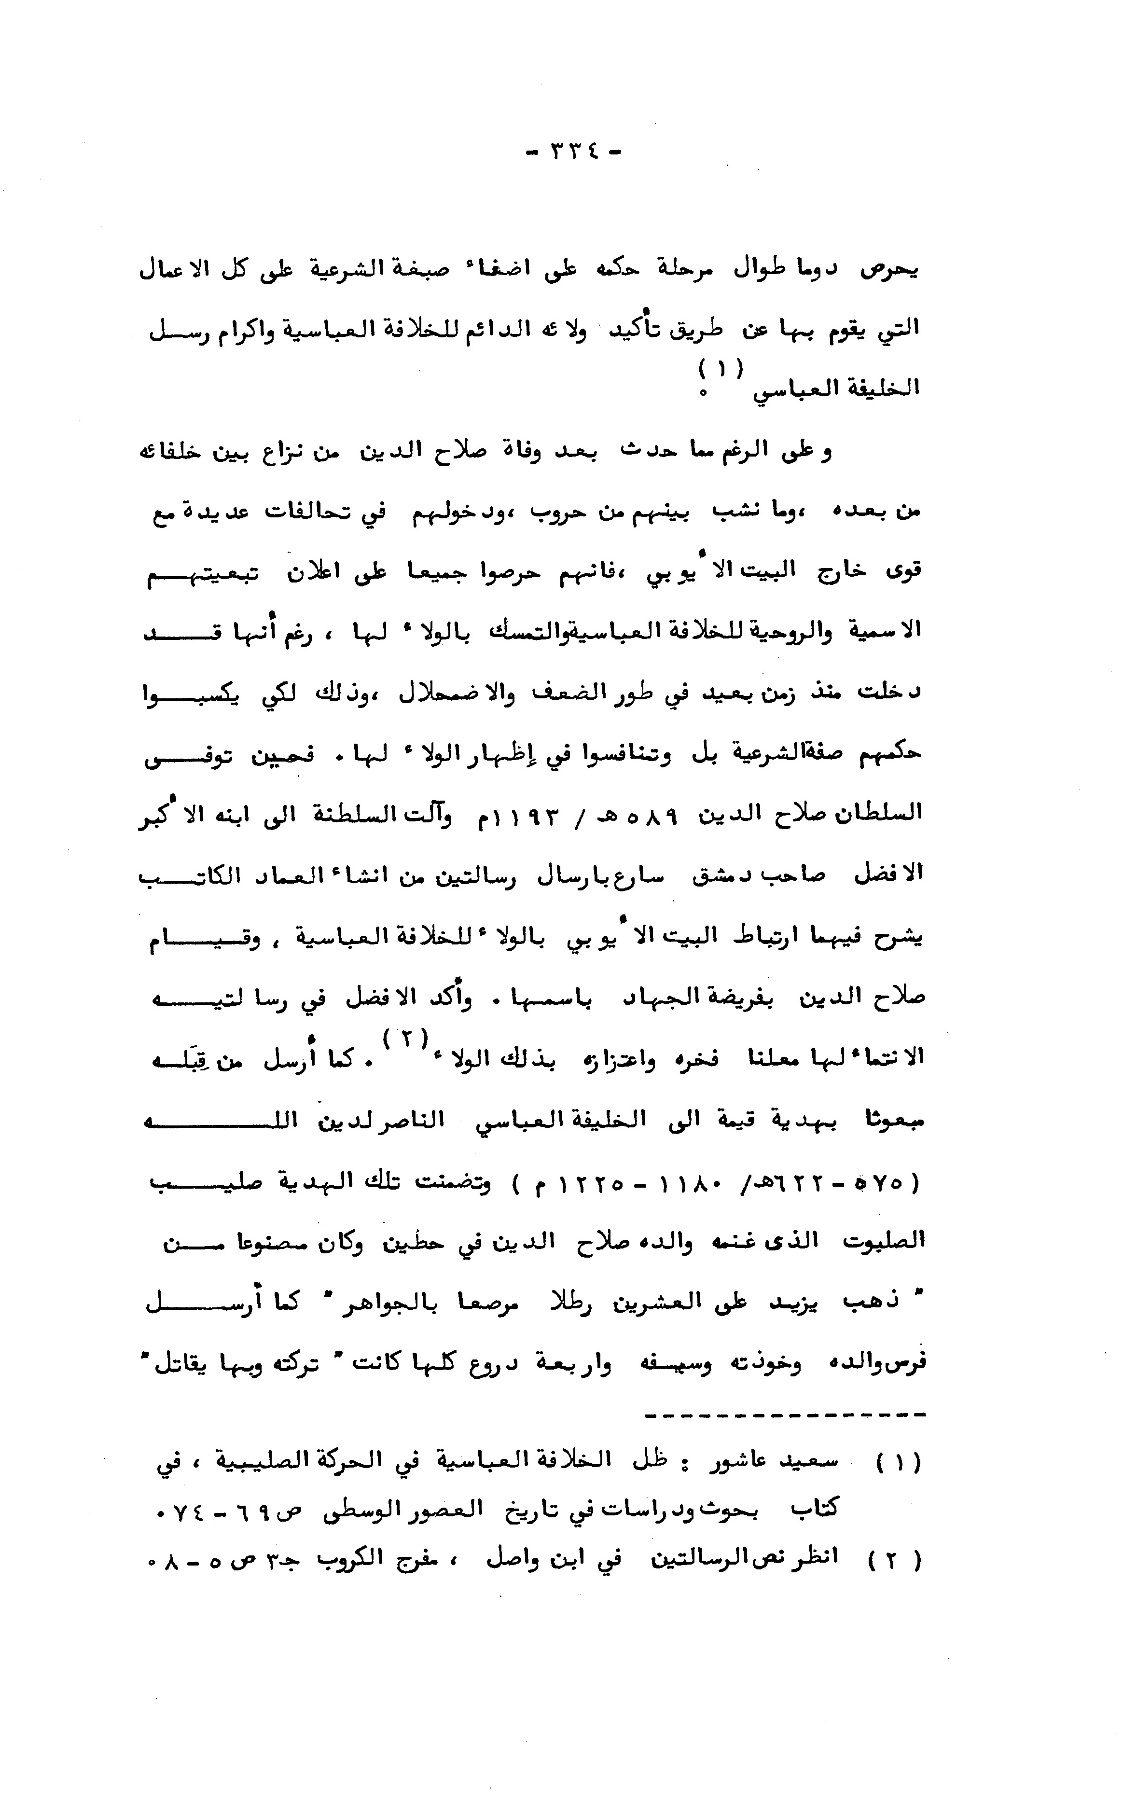 - ٣٣٤ -
يحرص دوما طوال مرحلة حكمه على اضفاء صبغة الشرعية على كل الاعمال
التي يقوم بها عن طريق تأكيد ولائه الدائم للخلافة العباسية واكرام رسل
الخليفة العباسي (١) .
وعلى الرغم مما حدث بعد وفاة صلاح الدين من نزاع بين خلفائه
من بعده ،وما نشب بينهم من حروب ،ودخولهم في تحالفات عديدة مع
قوى خارج البيت الأيوبي ،فانهم حرصوا جميعا على اعلان تبعيتهم
الاسمية والروحية للخلافة العباسية والتمسك بالولاء لها ، رغم أنها قد
دخلت منذ زمن بعيد في طور الضعف والاضمحلال ،وذلك لكي يكسبوا
حكمهم صفة الشرعية بل وتنافسوا في إظهار الولاء لها . فحين توفى
السلطان صلاح الدين ٥٨٩ هـ / ١١٩٣م وآلت السلطنة الى ابنه الأكبر
الافضل صاحب دمشق سارع بارسال رسالتين من انشاء العماد الكاتب
يشرح فيهما ارتباط البيت الأيوبي بالولاء للخلافة العباسية ، وقيام
صلاح الدين بفريضة الجهاد باسمها . وأكد الافضل في رسالتيه
الانتماء لها معلنا فخره واعتزازه بذلك الولاء (٢) . كما أرسل من قِبَله
مبعوثا بهدية قيمة الى الخليفة العباسي الناصر لدين الله
(٥٧٥ - ٦٢٢هـ/ ١١٨٠ - ١٢٢٥ م ) وتضمنت تلك الهدية صليب
الصلبوت الذى غنمه والده صلاح الدين في حطين وكان مصنوعا من
" ذهب يزيد على العشرين رطلا مرصعا بالجواهر " كما أرسل
فرس والده وخوذته وسيفه واربعة دروع كلها كانت " تركته وبها يقاتل "
(١) سعيد عاشور : ظل الخلافة العباسية في الحركة الصليبية ، في
كتاب بحوث ودراسات في تاريخ العصور الوسطى ص ٦٩ - ٧٤ .
(٢) انظر نص الرسالتين في ابن واصل ، مفرج الكروب جـ٣ ص ٥ - ٨ .